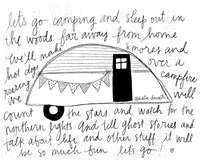 let's go camping and sleep out in
the woods far away from home
we'll make s'mores and
hot dogs over a
campfire
we will
count the stars and watch for the
northern lights and tell ghost stories and
talk about life and other stuff. it will
be so much fun. let's go!